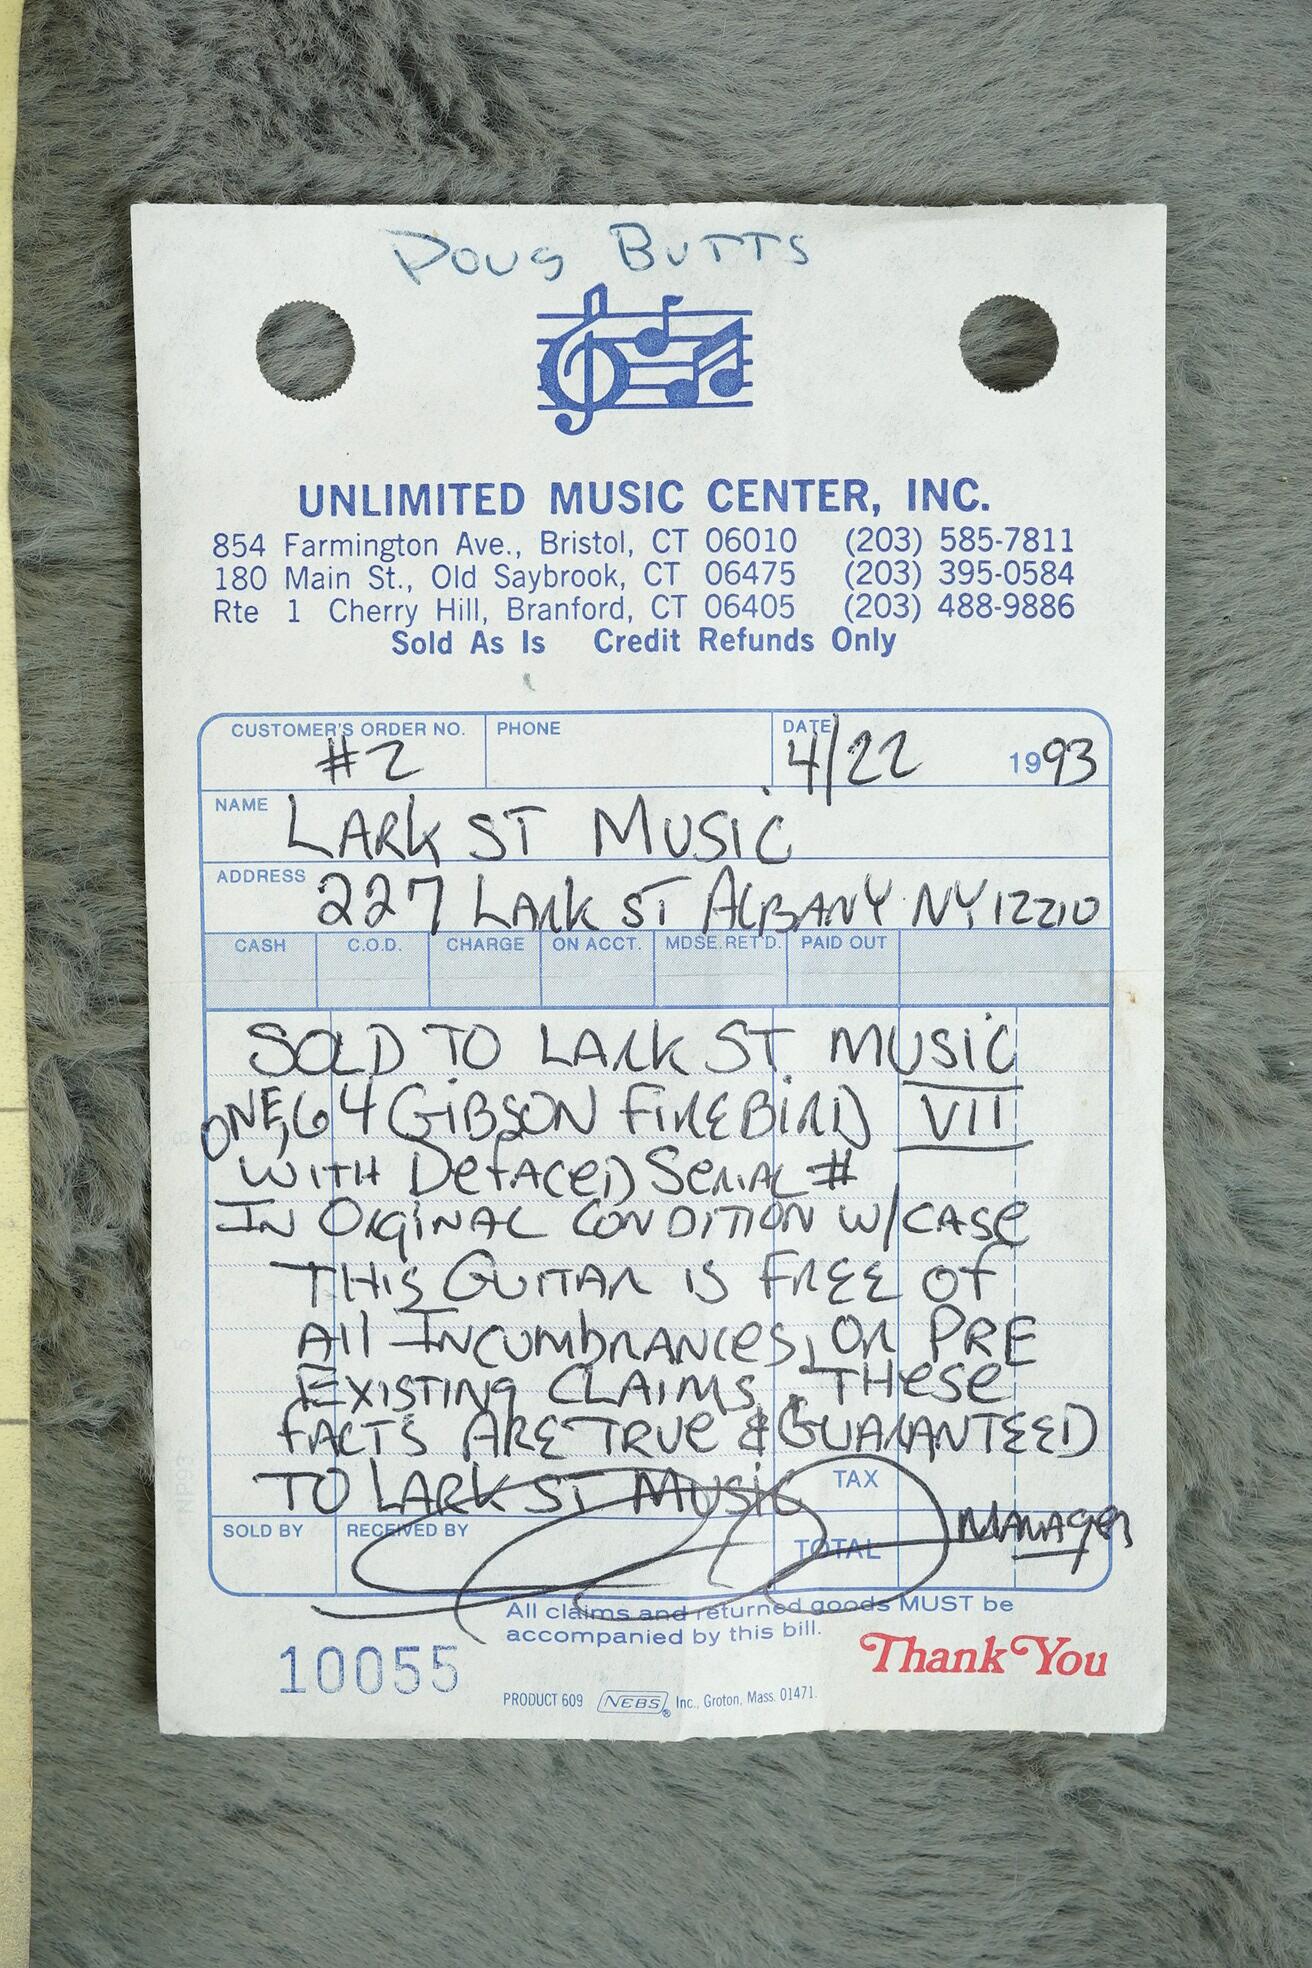 Doug Butts
UNLIMITED MUSIC CENTER, INC.
854 Farmington Ave., Bristol, CT 06010 (203) 585-7811
180 Main St., Old Saybrook, CT 06475 (203) 395-0584
Rte 1 Cherry Hill, Branford, CT 06405 (203) 488-9886
Sold As Is Credit Refunds Only
CUSTOMER'S ORDER NO. #2 PHONE DATE 4/22 1993
NAME LARK ST MUSIC
ADDRESS 227 LARK ST ALBANY NY 12210
CASH C.O.D. CHARGE ON ACCT. MDSE. RET'D. PAID OUT
SOLD TO LARK ST. MUSIC
ONE, 64 GIBSON FIREBIRD VII
WITH DEFACED SERIAL #
IN ORIGINAL CONDITION W/CASE
THIS GUITAR IS FREE OF
All INCUMBRANCES, OR PRE
EXISTING CLAIMS, THESE
FACTS ARE TRUE & GUARANTEED
TO LARK ST MUSIC
TAX
SOLD BY RECEIVED BY TOTAL MANAGER
All claims and returned goods MUST be
accompanied by this bill.
10055 Thank You
PRODUCT 609 NEBS ® Inc., Groton, Mass. 01471.